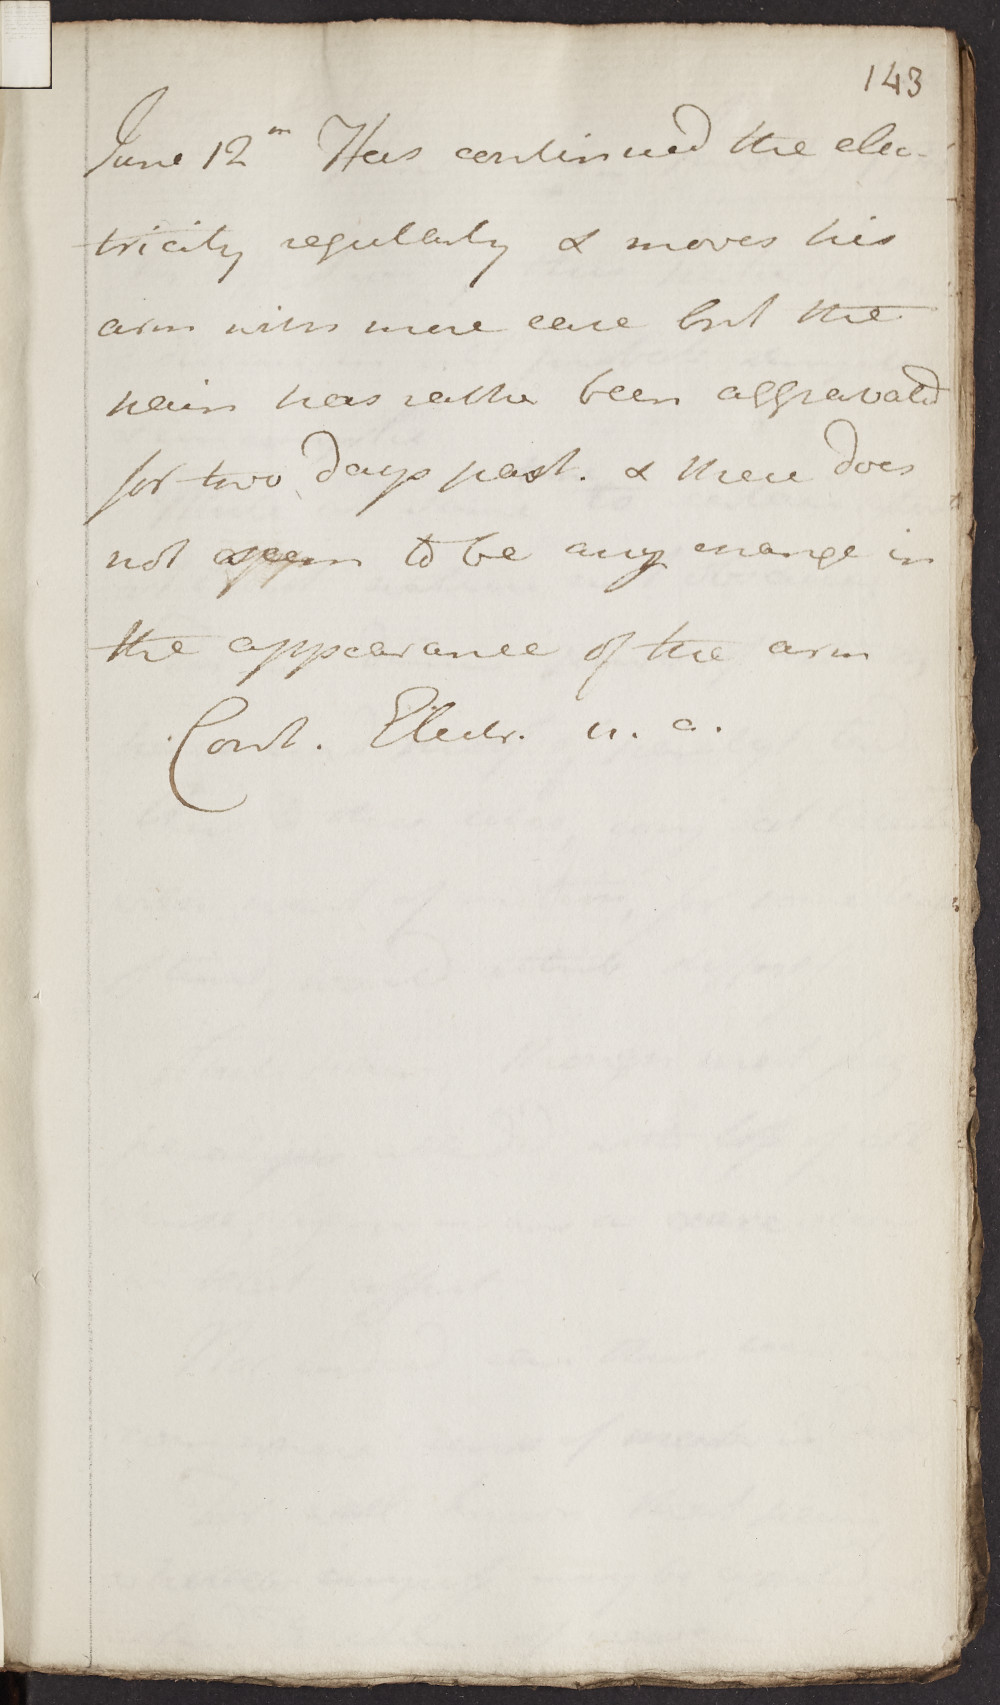 143
June 12th Has continued the elec-
tricity regularly & moves his
arm with more ease but the
pain has rather been aggravated
for two days past. & there does
not seem to be any change in
the appearance of the arm
Cont. Electr. u. a.